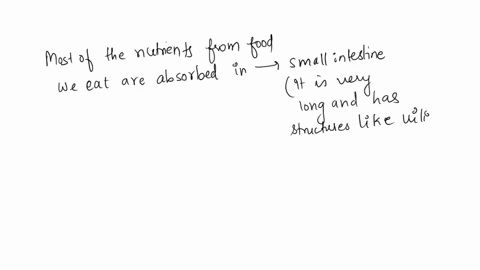 Most of the nutrients from food
we eat are absorbed in → small intestine
(It is very
long and has
structures like villi